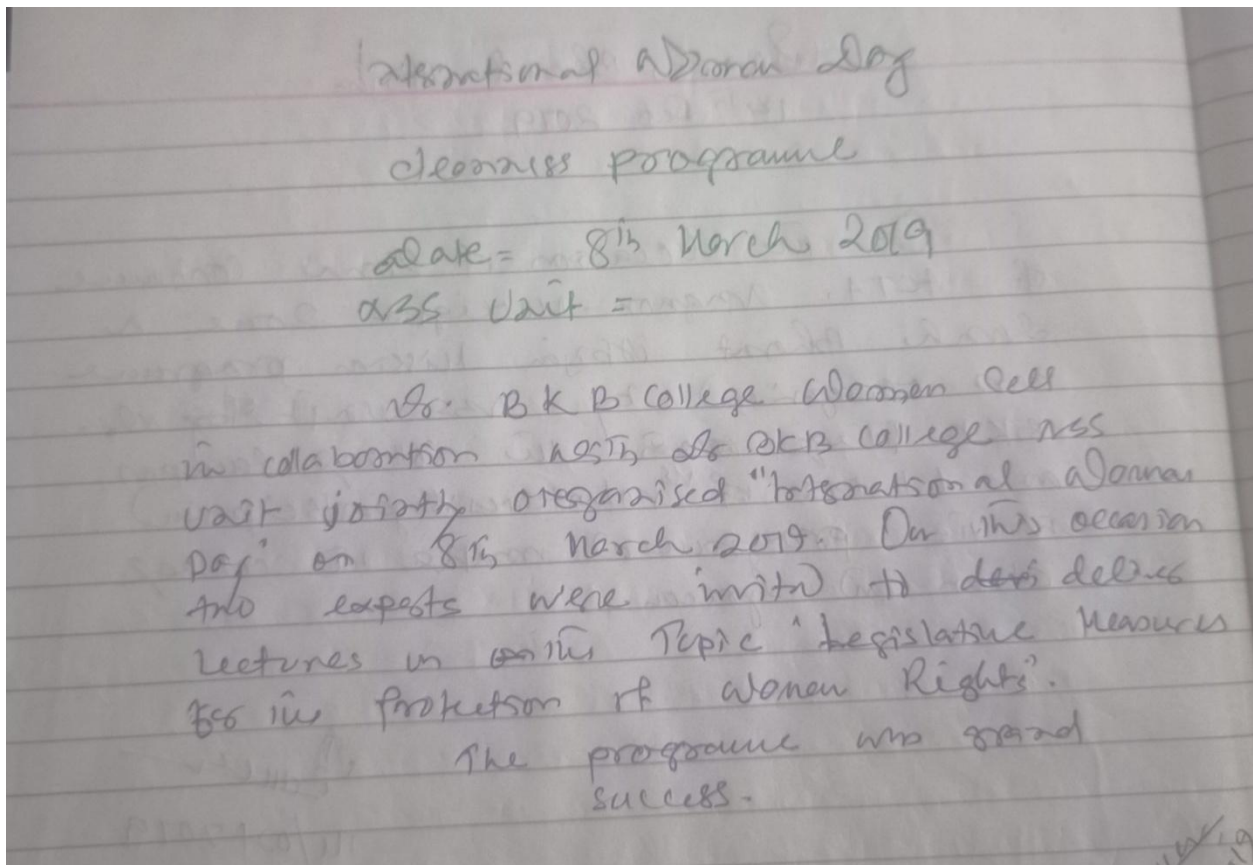 International Women Day
cleanness programme
Date = 8th March 2019
NSS Unit =
Dr. B K B College Women Cell
in collaboration with Dr BKB College NSS
unit jointly organised "International Women
Day" on 8th March 2019. On this occasion
two experts were invited to deliver
lectures in the Topic "Legislative Measures
for the Protection of Women Rights".
The programme was grand
success.